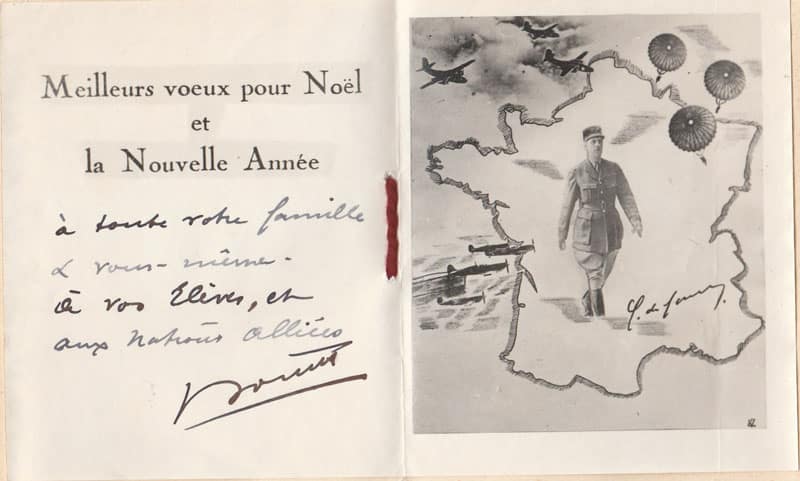 Meilleurs voeux pour Noël
et
la Nouvelle Année
à toute votre famille
& vous-même.
à vos Elèves, et
aux Nations alliées